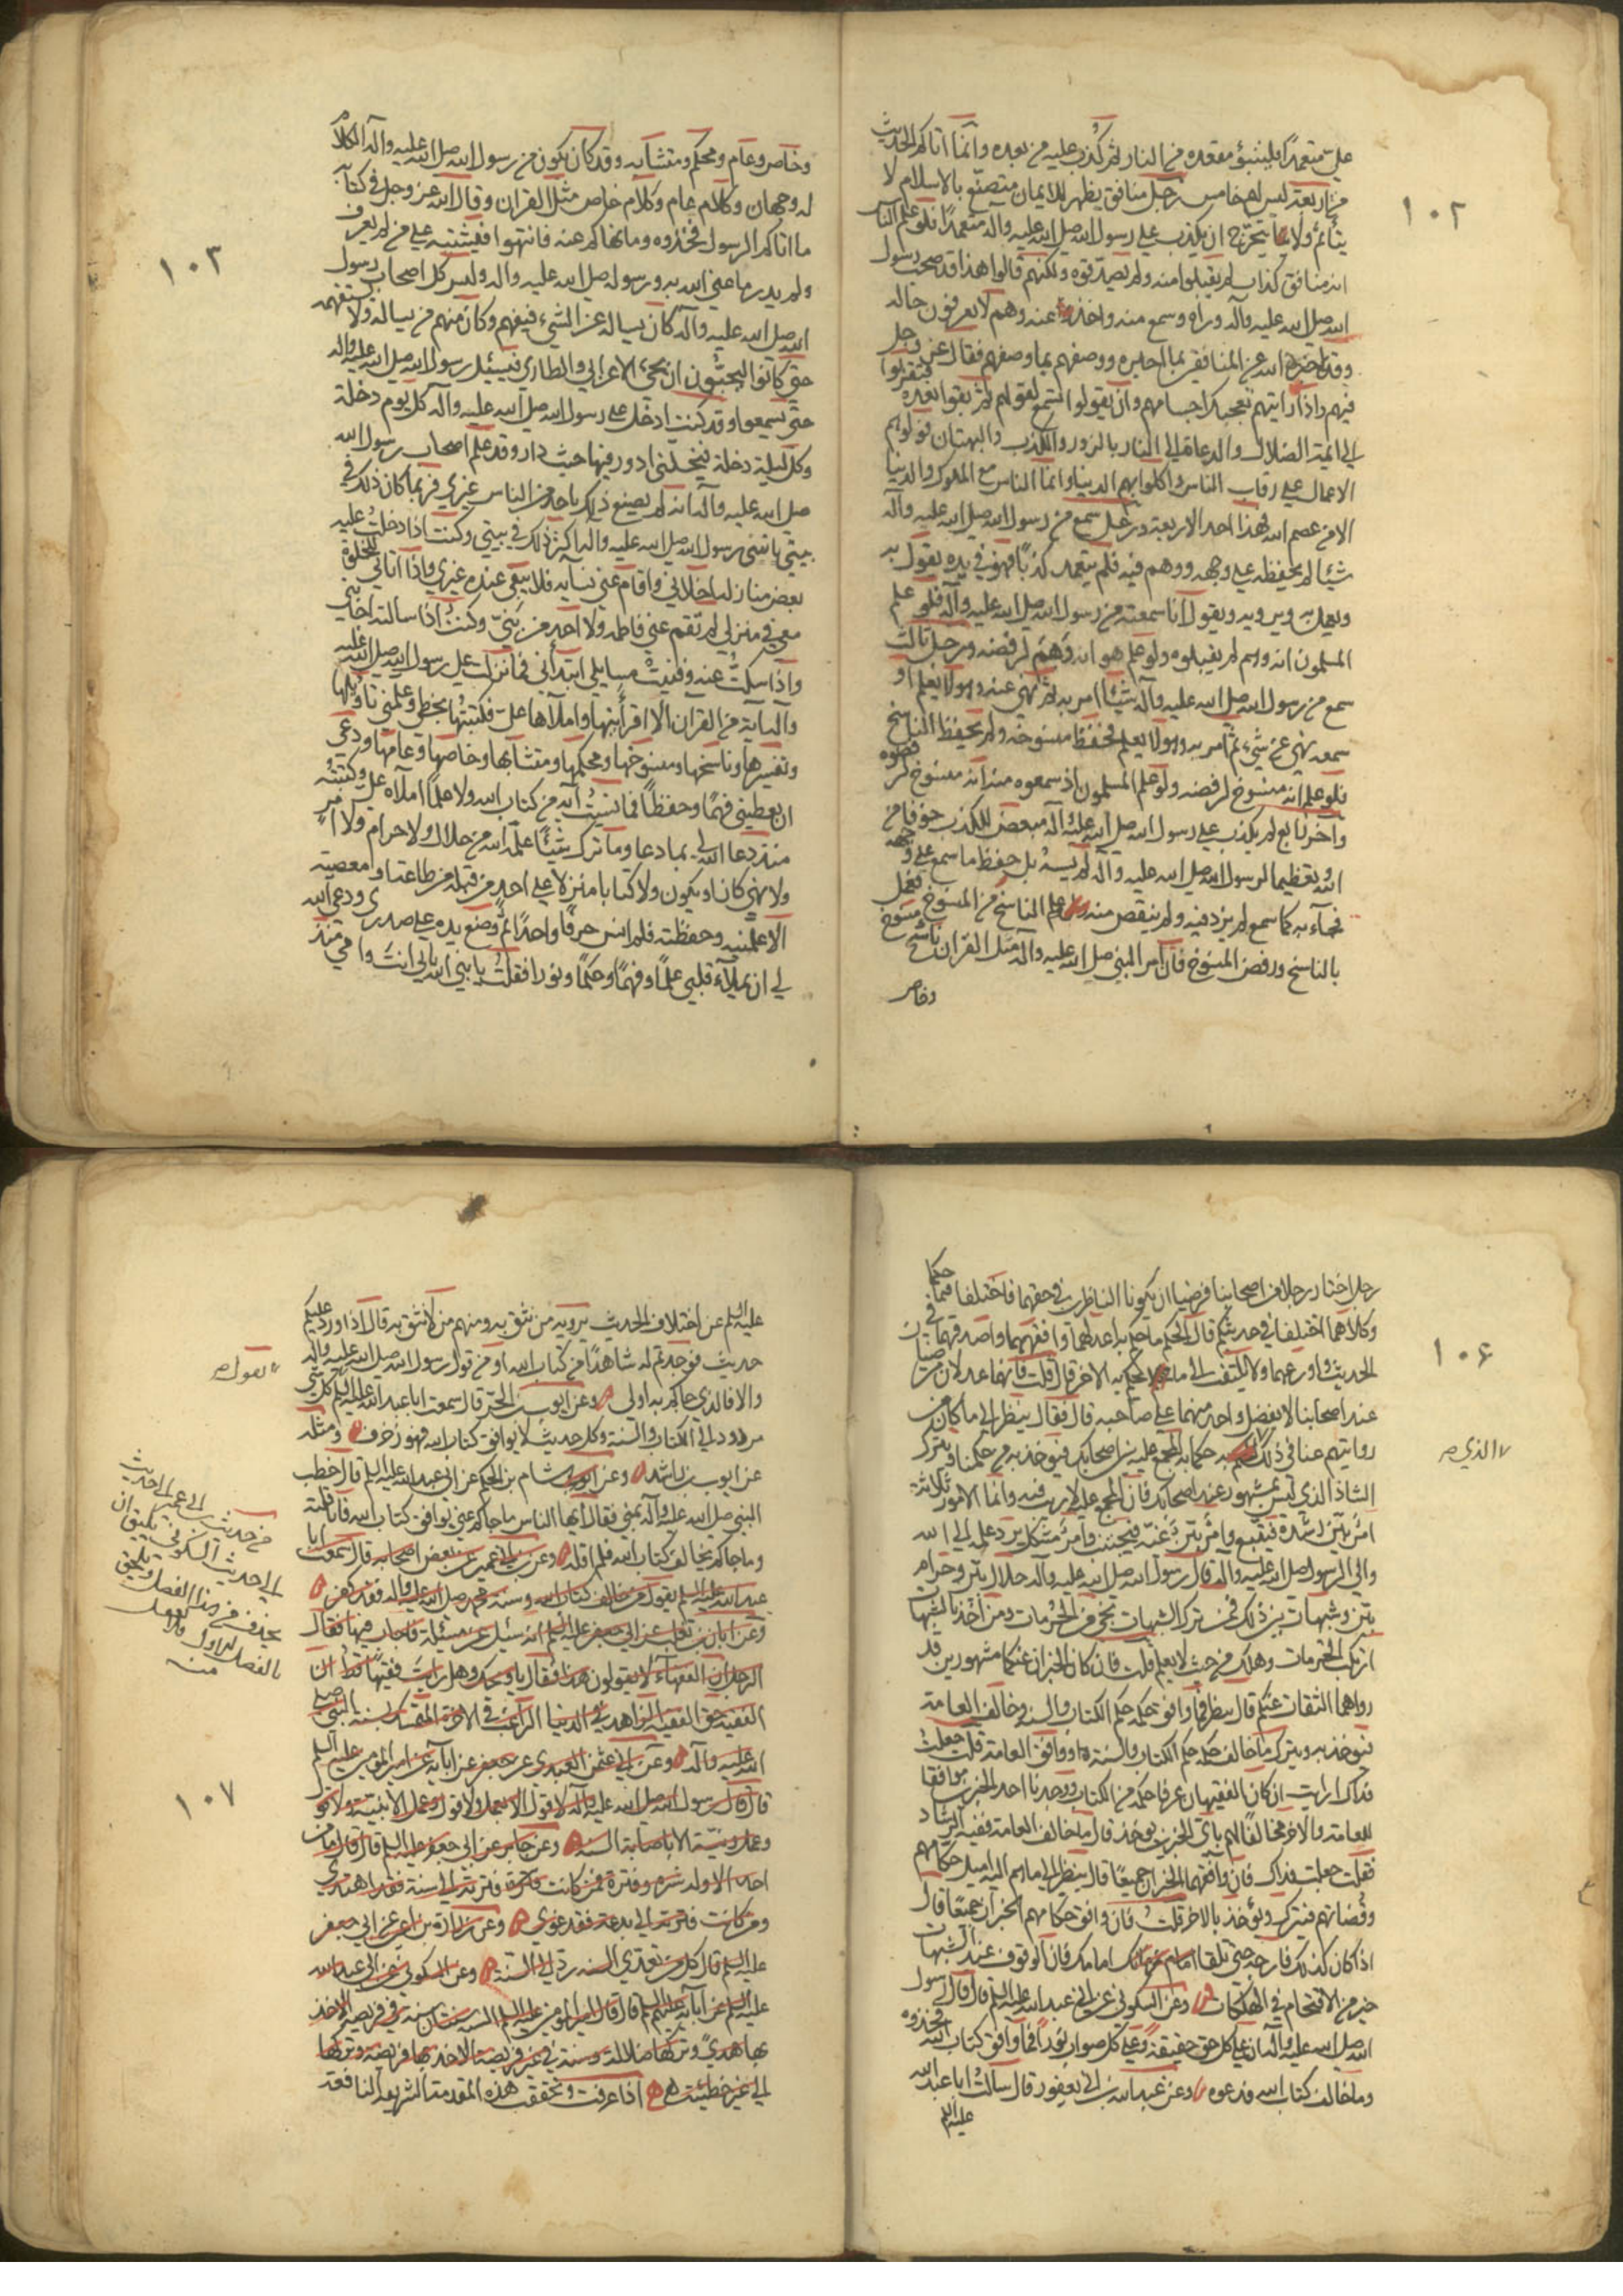 ١٠٢
علي متعمدا فليتبوّء مقعده من النار ثم كُذب عليه من بعده وانّما اتاكم الحديث
من اربعة ليس لهم خامس رجل منافق يظهر للايمان متصنّع بالاسلام لا
يتأثم ولا يتحرّج ان يكذب على رسول الله صلى الله عليه وآله متعمدًا فلو علم الناس
انه منافق كذاب لم يقبلوا منه ولم يصدّقوه ولكنهم قالوا هذا قد صحب رسول
الله صلى الله عليه وآله ورآه وسمع منه واخذوا عنه وهم لا يعرفون حاله
وقد اخبره الله عن المنافقين بما اخبره ووصفهم بما وصفهم فقال عز وجل
فيهم واذا رايتهم تعجبك اجسامهم وان يقولوا تسمع لقولهم ثم بقوا بعده فتقربوا
الى ائمة الضلال والدعاة الى النار بالزور والكذب والبهتان فولوهم
الاعمال على رقاب الناس واكلوا بهم الدنيا وانما الناس مع الملوك والدنيا
الا من عصم الله فهذا احد الاربعة ورجل سمع من رسول الله صلى الله عليه وآله
شيئا لم يحفظه على وجهه ووهم فيه فلم يتعمد كذبًا فهو في يده يقول به
ويعمل به ويرويه ويقول انا سمعته من رسول الله صلى الله عليه وآله فلو علم
المسلمون انه وهم لم يقبلوه ولو علم هو انه وَهَمَ لرفضه ورجل ثالث
سمع من رسول الله صلى الله عليه وآله شيئا امر به ثم نهى عنه وهو لا يعلم او
سمعه ينهى عن شيء ثم امر به وهو لا يعلم فحفظ منسوخه ولم يحفظ الناسخ
فلو علم انه منسوخ لرفضه ولو علم المسلمون اذ سمعوه منه انه منسوخ لرفضوه
وآخر رابع لم يكذب على رسول الله صلى الله عليه وآله مبغض للكذب خوفا من
الله وتعظيما لرسول الله صلى الله عليه وآله لم ينسه بل حفظ ما سمع على وجهه
فجآء به كما سمع لم يزد فيه ولم ينقص منه وعلم الناسخ من المنسوخ فعمل
بالناسخ ورفض المنسوخ فان امر النبي صلى الله عليه وآله مثل القرآن ناسخ ومنسوخ
وخاص
١٠٣
وخاص وعام ومحكم ومتشابه وقد كان يكون من رسول الله صلى الله عليه وآله الكلام
له وجهان وكلام عام وكلام خاص مثل القرآن وقال الله عز وجل في كتابه
ما اتاكم الرسول فخذوه وما نهاكم عنه فانتهوا فيشتبه على من لم يعرف
ولم يدر ما عنى الله به ورسوله صلى الله عليه وآله وليس كل اصحاب رسول
الله صلى الله عليه وآله كان يساله عن الشيء فيفهم وكان منهم من يساله ولا يستفهمه
حتى كانوا ليحبّون ان يجيء الاعرابي والطاري فيسئل رسول الله صلى الله عليه وآله
حتى يسمعوا وقد كنت ادخل على رسول الله صلى الله عليه وآله كل يوم دخلة
وكل ليلة دخلة فيخلّيني ادور فيها حيث دار وقد علم اصحاب رسول الله
صلى الله عليه وآله انه لم يصنع ذلك باحد من الناس غيري فربما كان ذلك في
بيتي ياتيني رسول الله صلى الله عليه وآله اكثر ذلك في بيتي وكنت اذا دخلت عليه
بعض منازله اخلاني واقام عني نسآءه فلا يبقى عنده غيري واذا اتاني للخلوة
معي في منزلي لم تقم عني فاطمة ولا احد من بَنيّ وكنت اذا سالته اجابني
واذا سكتُّ عنه وفنيت مسايلي ابتدأني فما نزلت على رسول الله صلى الله عليه
وآله آية من القرآن الا اقرأنيها واملاها عليّ فكتبتُها بخطي وعلمني تاويلها
وتفسيرها وناسخها ومنسوخها ومحكمها ومتشابهها وخاصها وعامها ودعى
ان يعطيني فهمًا وحفظًا فما نسيت آية من كتاب الله ولا علمًا املاه علي وكتبتُه
منذ دعا الله لي بما دعا وما ترك شيئًا علّمه الله من حلال ولا حرام ولا امر
ولا نهي كان او يكون ولا كتابا منزلا على احد من قبله من طاعة او معصية
الا علمنيه وحفظته فلم انس حرفًا واحدًا ثم وضع يده على صدري ودعى الله
لي ان يملأ قلبي علمًا وفهمًا وحكمًا ونورا فقلت يا نبي الله بابي انت وامي منذ
١٠٦
رجل اختار رجلا من اصحابنا فرضيا ان يكونا الناظرين في حقهما فاختلفا فيما حكما
وكلاهما اختلفا في حديثكم قال الحكم ما حكم به اعدلهما وافقههما واصدقهما في
الحديث واورعهما ولا يلتفت الى ما يحكم به الاخر قال قلت فانهما عدلان مرضيان
عند اصحابنا لا يفضل واحد منهما على صاحبه قال فقال ينظر الى ما كان من
روايتهم عنا في ذلك حكما به المجمع عليه بين اصحابك فيؤخذ به من حكمنا ويترك
٧ الذي ص
الشاذ الذي ليس بمشهور عند اصحابك فان المجمع عليه لا ريب فيه وانما الامور ثلاثة:
امرٌ بيّن رشده فيتبع وامرٌ بيّن غيّه فيجتنب وامرٌ مشكل يرد علمه الى الله
والى الرسول صلى الله عليه وآله قال رسول الله صلى الله عليه وآله حلال بيّن وحرام
بيّن وشبهات بين ذلك فمن ترك الشبهات نجى من المحرّمات ومن اخذ بالشبهات
ارتكب المحرمات وهلك من حيث لا يعلم قلت فان كان الخبران عنكما مشهورين قد
رواهما الثقات عنكم قال ينظر فما وافق حكمه حكم الكتاب والسنة وخالف العامة
فيؤخذ به ويترك ما خالف حكمه حكم الكتاب والسنة ووافق العامة قلت جعلت
فداك ارايت ان كان الفقيهان عرفا حكمه من الكتاب ووجدنا احد الخبرين موافقا
للعامة والاخر مخالفًا لهم باي الخبرين يؤخذ قال ما خالف العامة ففيه الرشاد
فقلت جعلت فداك فان وافقهما الخبران جميعًا قال ينظر الى ما هم اليه اميل حكامهم
وقُضاتهم فيترك ويؤخذ بالاخر قلت فان وافق حكامهم الخبران جميعًا قال
اذا كان كذلك فارجه حتى تلقا امامك فان الوقوف عند الشبهات
خير من الاقتحام في الهلكات وعن السكوني عن ابي عبد الله عليه السلم قال قال رسول
الله صلى الله عليه وآله ان على كل حق حقيقة وعلى كل صواب نورًا فما وافق كتاب الله فخذوه
وما خالف كتاب الله فدعوه وعن عبد الله بن ابي يعفور قال سالت ابا عبد الله
عليه السلم
عليه السلم عن اختلاف الحديث يرويه من نثق به ومنهم من لا نثق به قال اذا ورد عليكم
حديث فوجدتم له شاهدًا من كتاب الله او من قول رسول الله صلى الله عليه وآله
والا فالذي جاءكم به اولى وعن ايوب بن الحرّ قال سمعت ابا عبد الله عليه السلم كل شيء
يقول ص
مردود الى الكتاب والسنة وكل حديث لا يوافق كتاب الله فهو زخرف ومثله
عن ايوب بن راشد وعن هشام بن الحكم عن ابي عبد الله عليه السلم قال خطب
النبي صلى الله عليه وآله بمنى فقال ايها الناس ما جاءكم عني يوافق كتاب الله فانا قلته
وما جاءكم يخالف كتاب الله فلم اقله وعن ابن ابي عمير عن بعض اصحابه قال سمعت ابا
عبد الله عليه السلم يقول من خالف كتاب الله وسنة محمد صلى الله عليه وآله فقد كفر
وعن ابان بن تغلب عن ابي جعفر عليه السلم انه سئل عن مسئلة فاجاب فيها فقال
الرجل ان الفقهاء لا يقولون هذا فقال يا ويحك وهل رايت فقيهًا قط ان
الفقيه حق الفقيه الزاهد في الدنيا الراغب في الاخرة المتمسك بسنة النبي صلى
الله عليه وآله وعن ابي عثمن العبدي عن جعفر عن آبآئه عن امير المؤمنين عليه السلم
قال قال رسول الله صلى الله عليه وآله لا قول الا بعمل ولا قول وعمل الا بنية ولا قول
وعمل ونيّة الا باصابة السنة وعن جابر عن ابي جعفر عليه السلم قال قال ما من
احد الا وله شره وفترة فمن كانت فترته الى سنة فقد اهتدى
ومن كانت فترته الى بدعة فقد غوى وعن زرارة بن اعين عن ابي جعفر
عليه السلم قال كل من تعدى السنة رد الى السنة وعن السكوني عن ابي عبد الله
عليه السلم عن آبآئه عليهم السلم قال قال امير المؤمنين عليه السلم السنة سنتان سنة في فريضة الاخذ
بها هدى وتركها ضلالة وسنة في غير فريضة الاخذ بها فريضة وتركها
الى غير خطيئة اذا عرفت وتحققت هذه المقدمة الشريفة النافعة
من حديث ابن ابي عمير الى حديث
الى حديث السكوني ينبغي ان
يحذف من هذا الفصل ويلحق
بالفصل الاول
منه
١٠٧